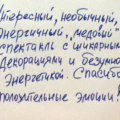 Интересный, необычный,
энергичный, "медовый"
спектакль с шикарными
декорациями и безумной
энергетикой. Спасибо
положительные эмоции!